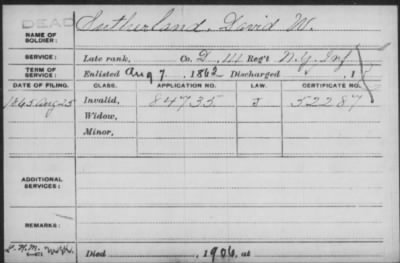 DEAD
NAME OF SOLDIER: Sutherland, David W.
SERVICE: Late rank, Co. D. 111 Reg't N.Y. Inf
TERM OF SERVICE: Enlisted Aug 7, 1862 Discharged , 1
DATE OF FILING. CLASS. APPLICATION NO. LAW. CERTIFICATE NO.
1865 Aug 25 Invalid, 84735 J 52287
Widow,
Minor,
ADDITIONAL SERVICES:
REMARKS:
Died , 1906, at